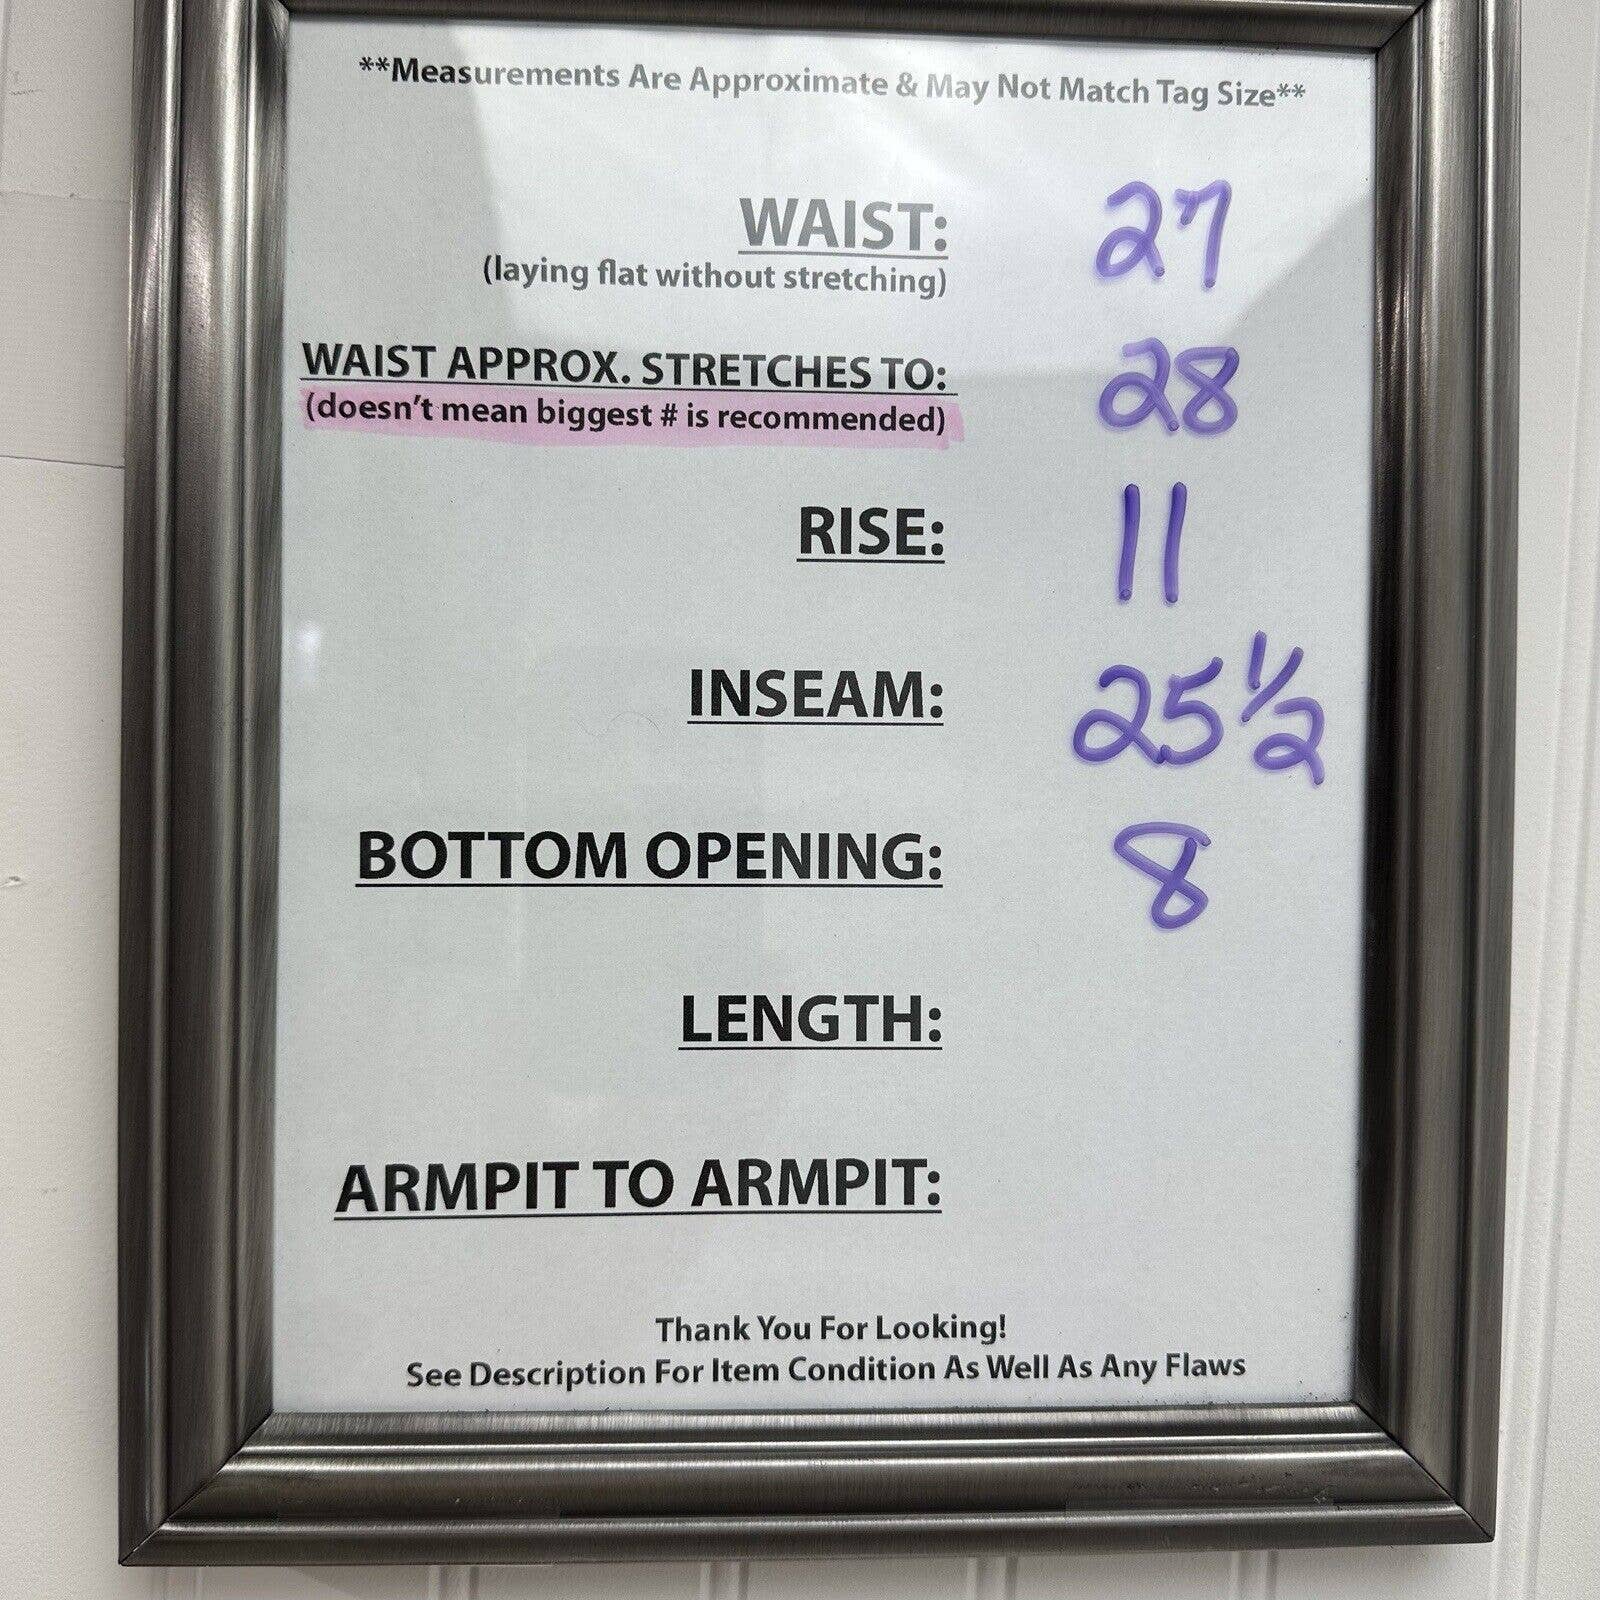 **Measurements Are Approximate & May Not Match Tag Size**
WAIST: 27
(laying flat without stretching)
WAIST APPROX. STRETCHES TO: 28
(doesn't mean biggest # is recommended)
RISE: 11
INSEAM: 25 1/2
BOTTOM OPENING: 8
LENGTH:
ARMPIT TO ARMPIT:
Thank You For Looking!
See Description For Item Condition As Well As Any Flaws